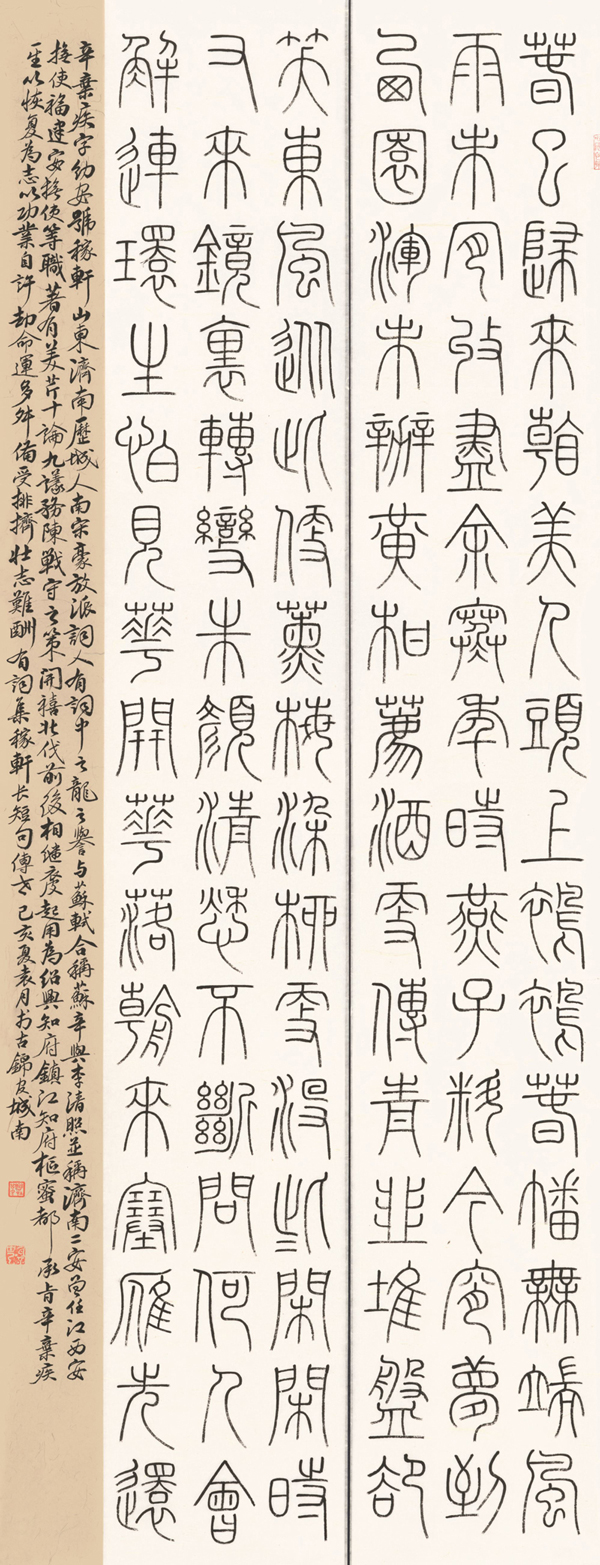 春已歸來看美人頭上裊裊春幡無端風
雨未肯收盡余寒年時燕子料今宵夢到
西園渾未辦黃柑薦酒更傳青韭堆盤卻
笑東風從此便薰梅染柳更沒些閑閑時
又來鏡裏轉變朱顏清愁不斷問何人會
解連環生怕見華開華落朝來塞雁先還
辛棄疾字幼安號稼軒山東濟南歷城人南宋豪放派詞人有詞中之龍之譽与蘇軾合稱蘇辛與李清照並稱濟南二安曾任江西安
撫使福建安撫使等職著有美芹十論九議務陳戰守之策開禧北伐前後相繼度起用為紹興知府鎮江知府樞密都承旨辛棄疾
一生以恢复為志以功業自許却命運多舛備受排擠壯志難酬有詞集稼軒长短句傳世己亥夏袁月於古錦官城南